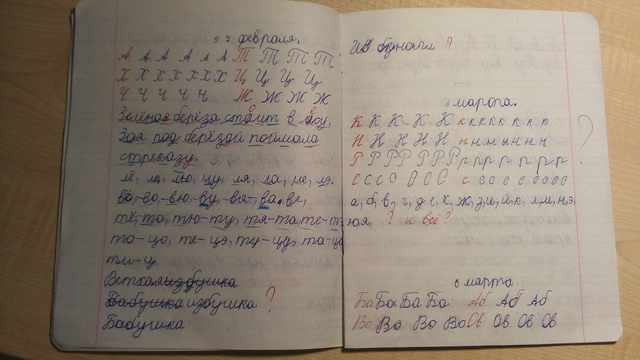 7 февраля.
А А А А А А Т Т Т Т
Х Х Х Х Х Х Х Ц Ц Ц Ц
Ч Ч Ч Ч Ч Ж Ж Ж Ж
Зелёная берёза стоит в лесу.
Зоя под берёзой поймала
стреказу.
во-во-вю-ву-вя-ва-ве,
те, то, тю-ту, тя-та, те-тэ
то-цо, те-цэ, ту-цу, та-ца
ти-ц
Ветхая избушка
Бабушка избушка ?
Бабушка
Из бумаги ?
марта.
К К К К К к к к к к к к
Н Н Н Н Н н н н н н н н
Р Р Р Р Р Р Р р р р р р р р р ?
С С С С О О О с с с с о о о о
а, б, в, г, д, е, к, ж, з, и, й, к, л, м, н, э,
ю, я. ? и всё?
6 марта
Ба Ба Ба Ба Аб Аб Аб
Во Во Во Во Ов Ов Ов Ов